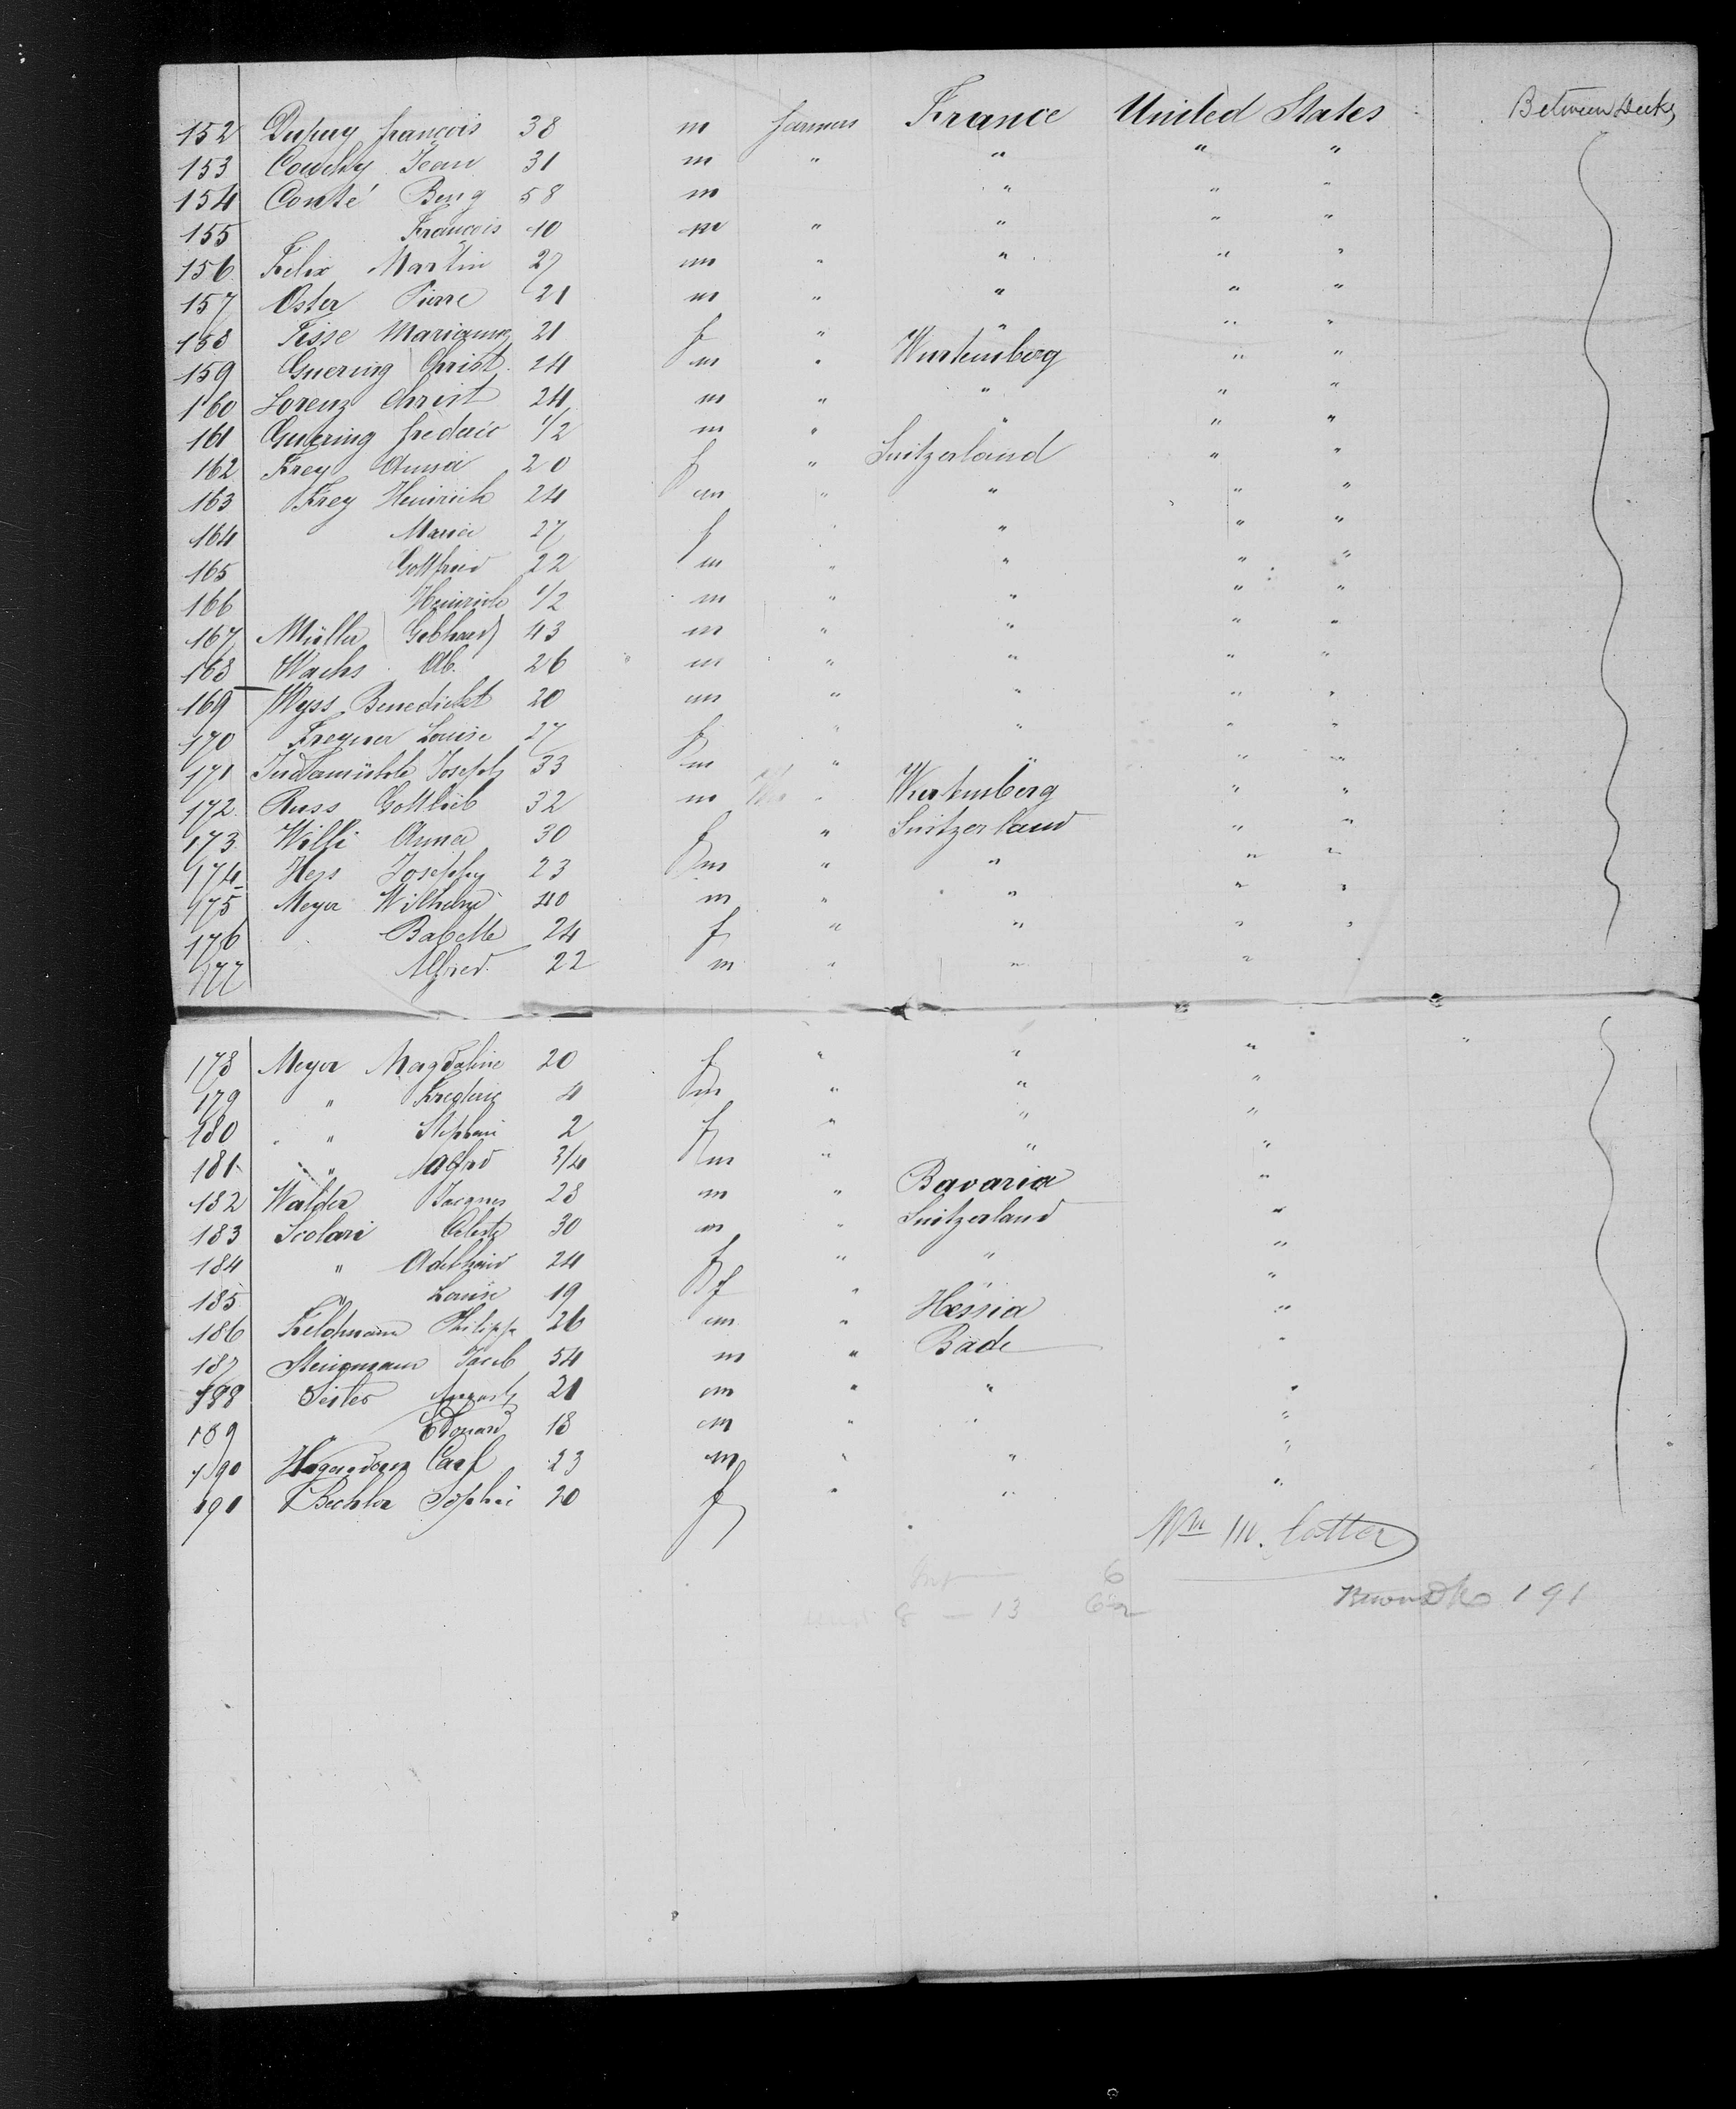 152 Dupuy françois 38 m farmers France United States Between Decks
153 Couchy Jean 31 m " " " "
154 Conté Beng 58 m " " "
155 François 10 m " " " "
156 Felix Martin 27 m " " " "
157 Oster Pierre 21 m " " " "
158 Tisse Marianne 21 f " " " "
159 Guering Christ. 24 m " Wurtemberg " "
160 Lorenz Christ 24 m " " " "
161 Guering frederic 1/2 m " " " "
162 Frey Anna 20 f " Switzerland " "
163 Frey Heinrich 24 m " " " "
164 Maria 27 f " " " "
165 Gottfried 22 m " " " "
166 Heinrich 1/2 m " " " "
167 Müller Gebhard 43 m " " " "
168 Wachs Ab. 26 m " " " "
169 Wyss Benedickt 20 m " " " "
170 Louise 27 f " " " "
171 Indamühle Joseph 33 m " " " "
172 Russ Gottlieb 32 m " Wurtemberg " "
173 Willi Anna 30 f " Switzerland " "
174 Hess Joseph 23 m " " " "
175 Meyer Wilhelm 40 m " " " "
176 Babette 24 f " " " "
177 Alfred 22 m " " " "
178 Meyer Magdaline 20 f " " " "
179 " Frederic 4 m " " "
180 " Stephani 2 f " " "
181 " Alfred 3/4 m " " "
182 Walder Jacques 28 m " Bavaria "
183 Scolari Celeste 30 m " Switzerland "
184 " Adelhaid 24 f " " "
185 " Louise 19 f " " "
186 Feldmann Philipp 26 m " Hessia "
187 Steinmann Jacob 54 m " Bade "
188 Seiter August 21 m " " "
189 Edouard 18 m " " "
190 Carl 23 m " " "
191 Bechler Sophie 20 f " " "
Wm M. Cotter
6
8 — 13
191